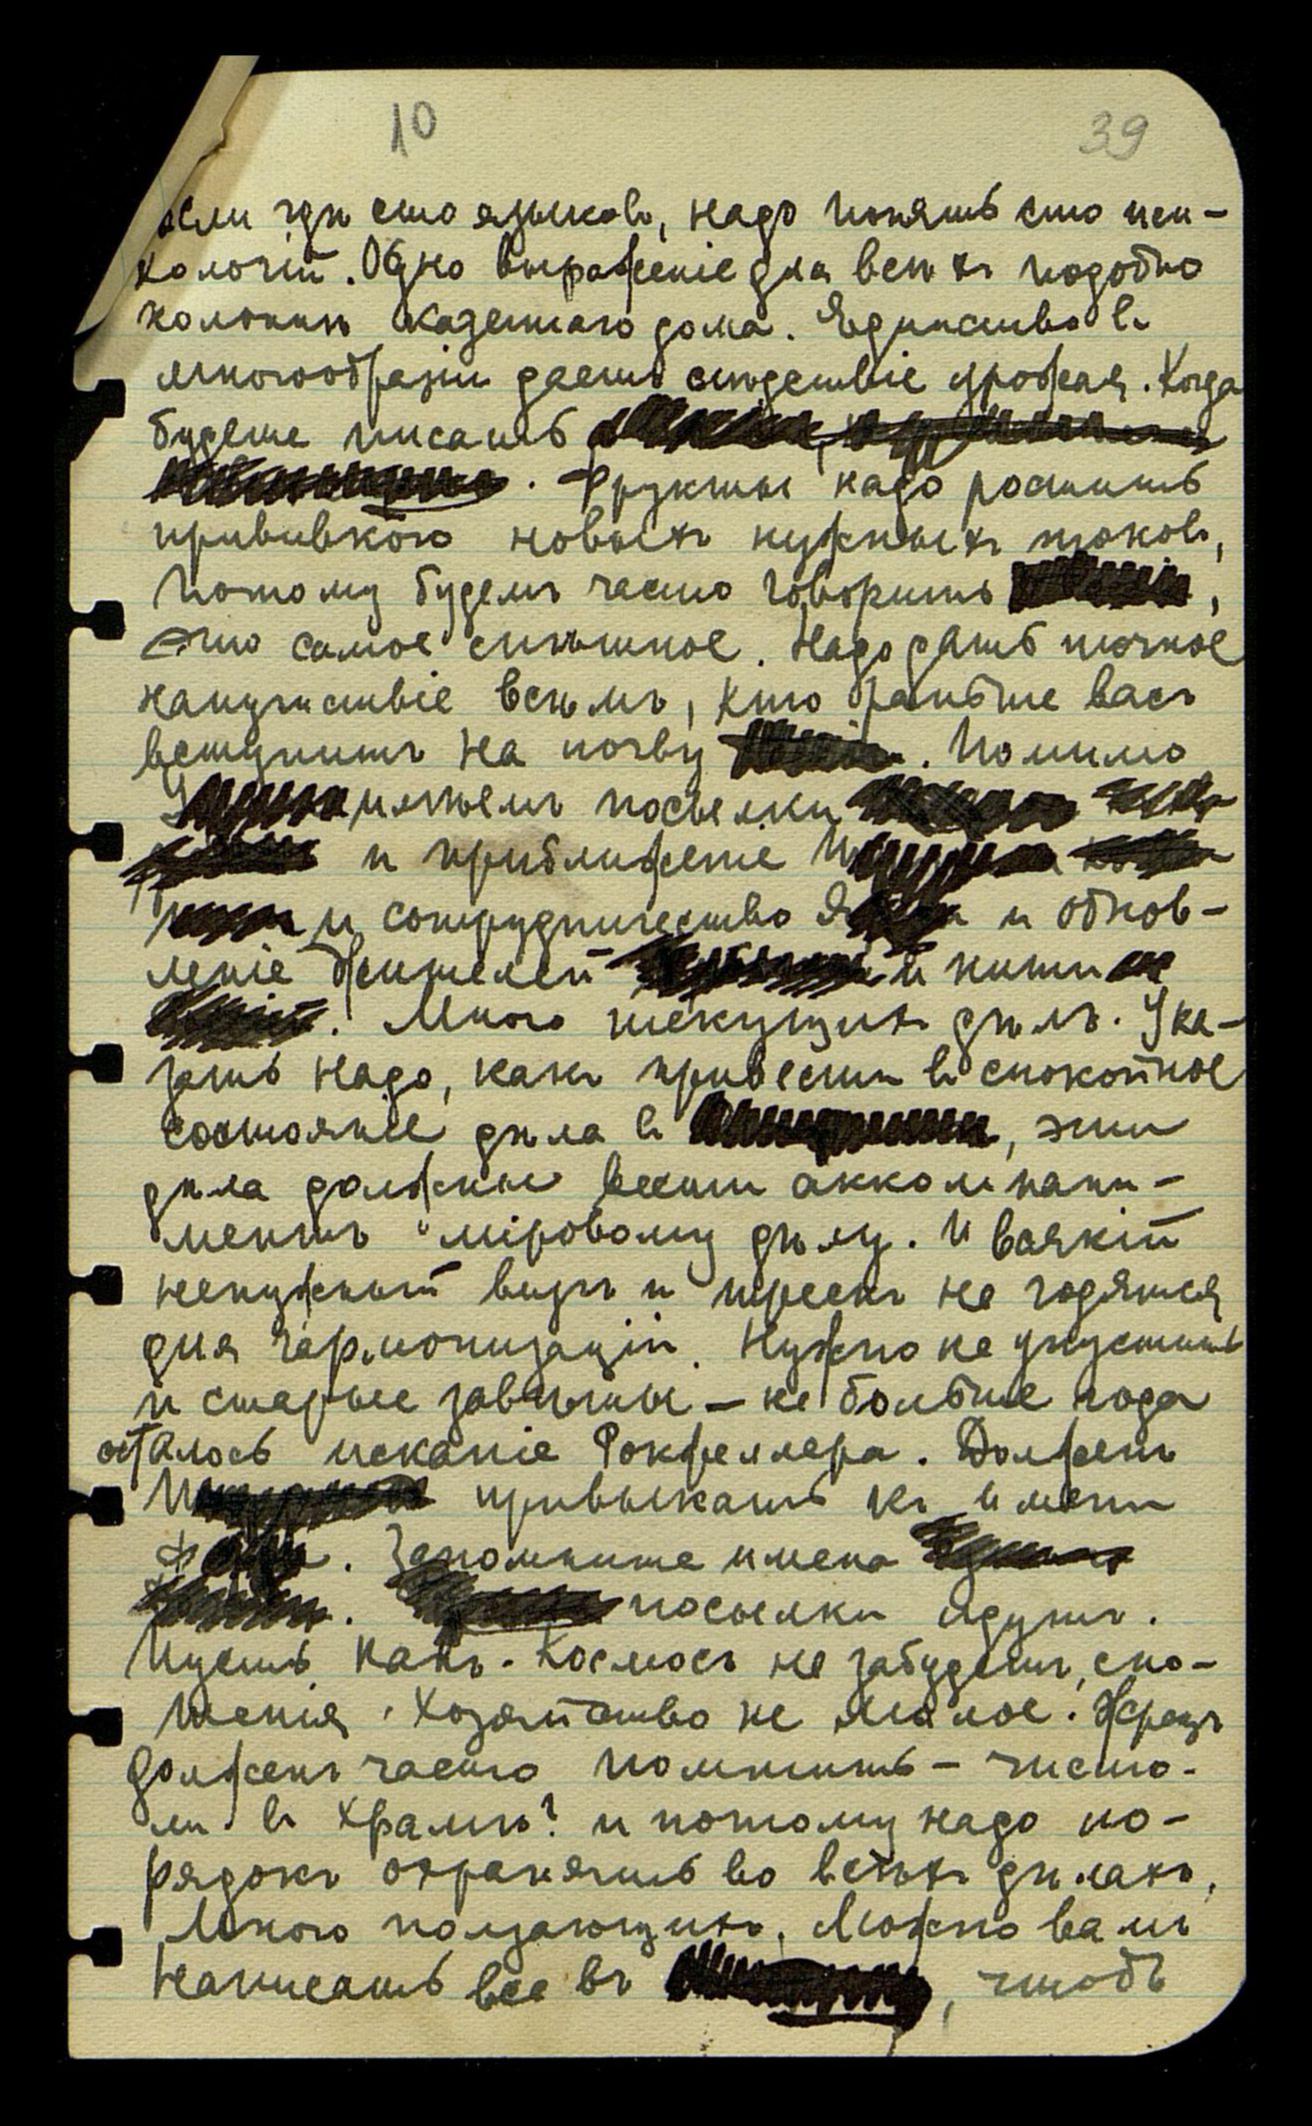 10 39
если гдѣ сто языковъ, надо понять сто пси-
хологій. Одно выраженіе для всѣхъ подобно
колоннѣ казеннаго дома. Единство въ
многообразіи даетъ слѣдствіе урожая. Когда
будете писать
. Фрукты надо ростить
прививкою новыхъ нужныхъ токовъ,
потому будемъ часто говорить ,
это самое спѣшное. Надо дать точное
напутствіе всѣмъ, кто раньше васъ
вступитъ на почву . Помимо
имѣемъ посылки
и приближеніе
и сотрудничество и обнов-
леніе жителей и нити
. Много текущихъ дѣлъ. Ука-
зать надо, какъ привести въ спокойное
состояніе дѣла въ , эти
дѣла должны вести аккомпани-
ментъ міровому дѣлу. И всякій
ненужный визгъ и трескъ не годятся
для гармонизаціи. Нужно не упустить
и старые завѣты — не больше года
осталось исканіе Рокфеллера. Долженъ
привыкать къ имени
. Запомните имена
. посылки идутъ.
Пусть Канъ-Космосъ не забудетъ сно-
шенія. Хозяйство не малое. Жрецъ
долженъ часто помнить — чисто-
ли въ храмѣ? и потому надо по-
рядокъ охранять во всѣхъ дѣлахъ.
Много ползающихъ. Можно вамъ
написать все въ , чтобъ